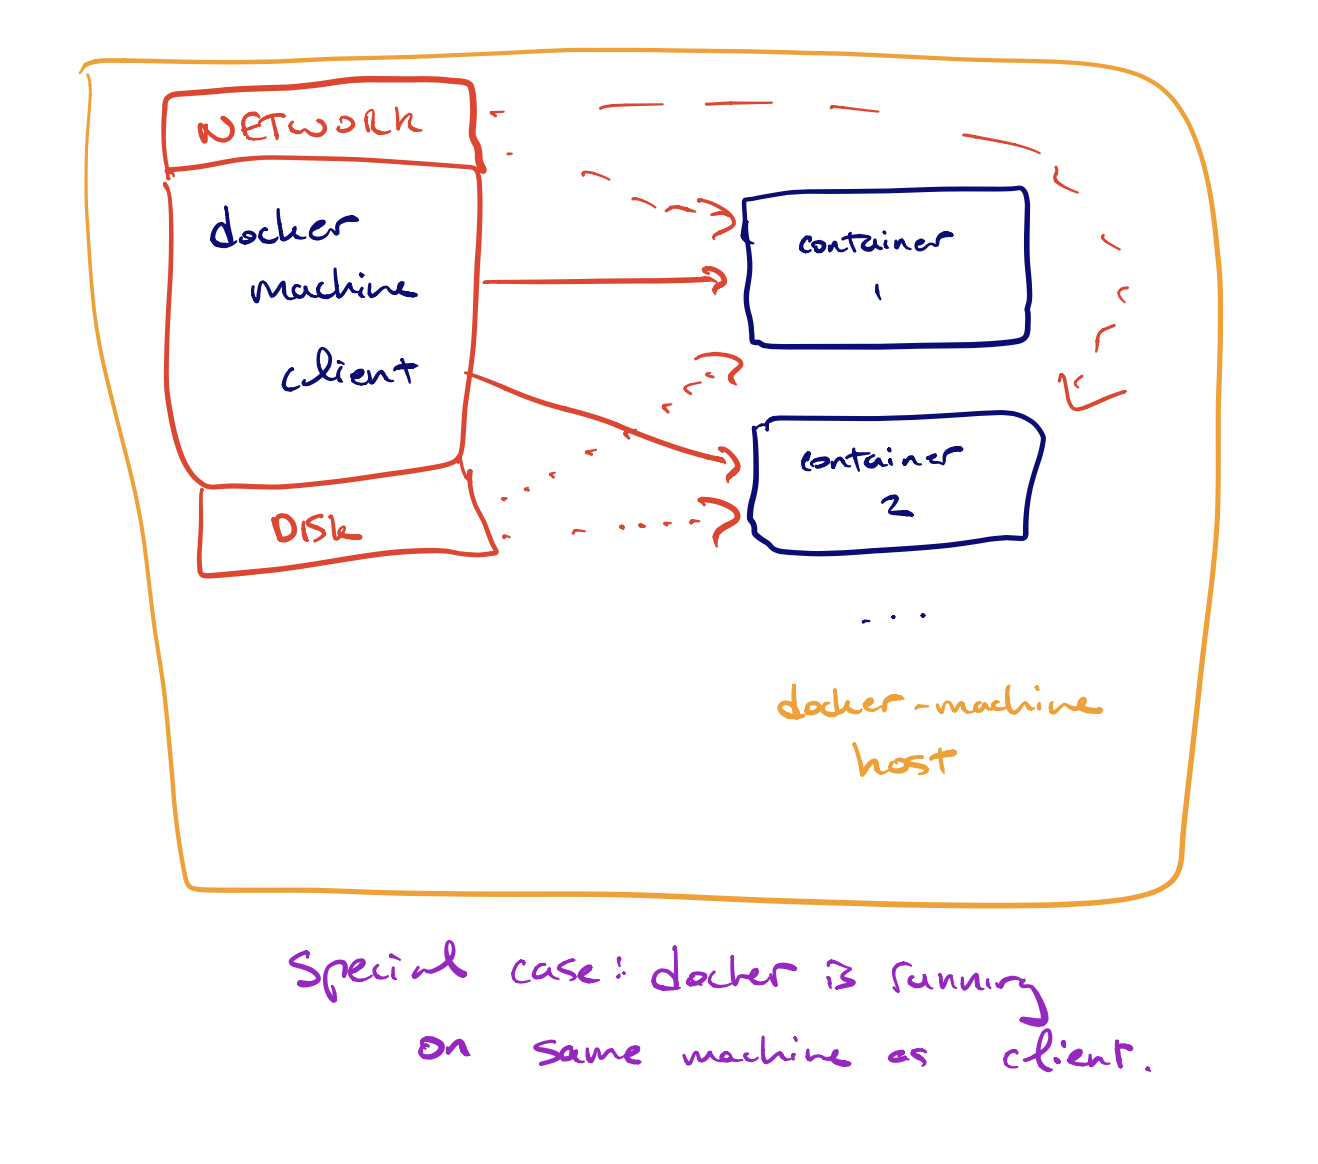 NETWORK
docker
machine
client
DISK
container
1
container
2
...
docker-machine
host
Special case: docker is running
on same machine as client.